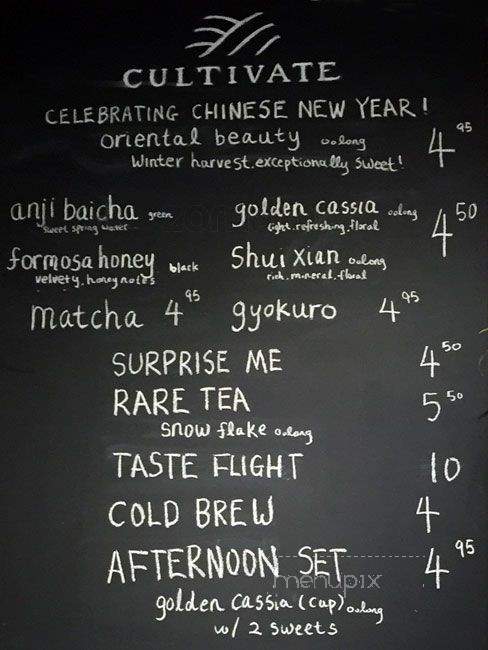 CULTIVATE
CELEBRATING CHINESE NEW YEAR!
oriental beauty oolong 4 95
Winter harvest.exceptionally sweet!
anji baicha green
sweet spring water
golden cassia oolong 4 50
light.refreshing.floral
formosa honey black
velvety.honey notes
Shui Xian oolong
rich.mineral.floral
matcha 4 95 gyokuro 4 95
SURPRISE ME 4 50
RARE TEA 5 50
snow flake oolong
TASTE FLIGHT 10
COLD BREW 4
AFTERNOON SET 4 95
menupix
golden cassia (cup) oolong
w/ 2 sweets